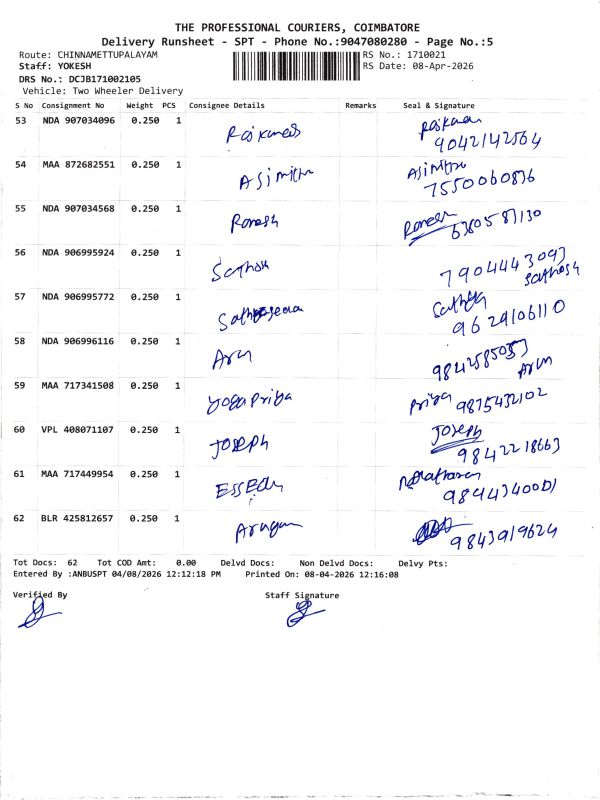 THE PROFESSIONAL COURIERS, COIMBATORE
Delivery Runsheet - SPT - Phone No.:9047080280 - Page No.:5
Route: CHINNAMETTUPALAYAM RS No.: 1710021
Staff: YOKESH RS Date: 08-Apr-2026
DRS No.: DCJB171002105
Vehicle: Two Wheeler Delivery
S No Consignment No Weight PCS Consignee Details Remarks Seal & Signature
53 NDA 907034096 0.250 1
9042142564
54 MAA 872682551 0.250 1 Asimithu Asimithu
7550060836
55 NDA 907034568 0.250 1 Ramesh Ramesh
56 NDA 906995924 0.250 1 Sathosh 7904443093
Sathosh
57 NDA 906995772 0.250 1
9629106110
58 NDA 906996116 0.250 1 Arun
Arun
59 MAA 717341508 0.250 1 Yoga Priya Priya 9875432102
60 VPL 408071107 0.250 1 Joseph Joseph
9842218663
61 MAA 717449954 0.250 1
62 BLR 425812657 0.250 1
9843919624
Tot Docs: 62 Tot COD Amt: 0.00 Delvd Docs: Non Delvd Docs: Delvy Pts:
Entered By :ANBUSPT 04/08/2026 12:12:18 PM Printed On: 08-04-2026 12:16:08
Verified By Staff Signature